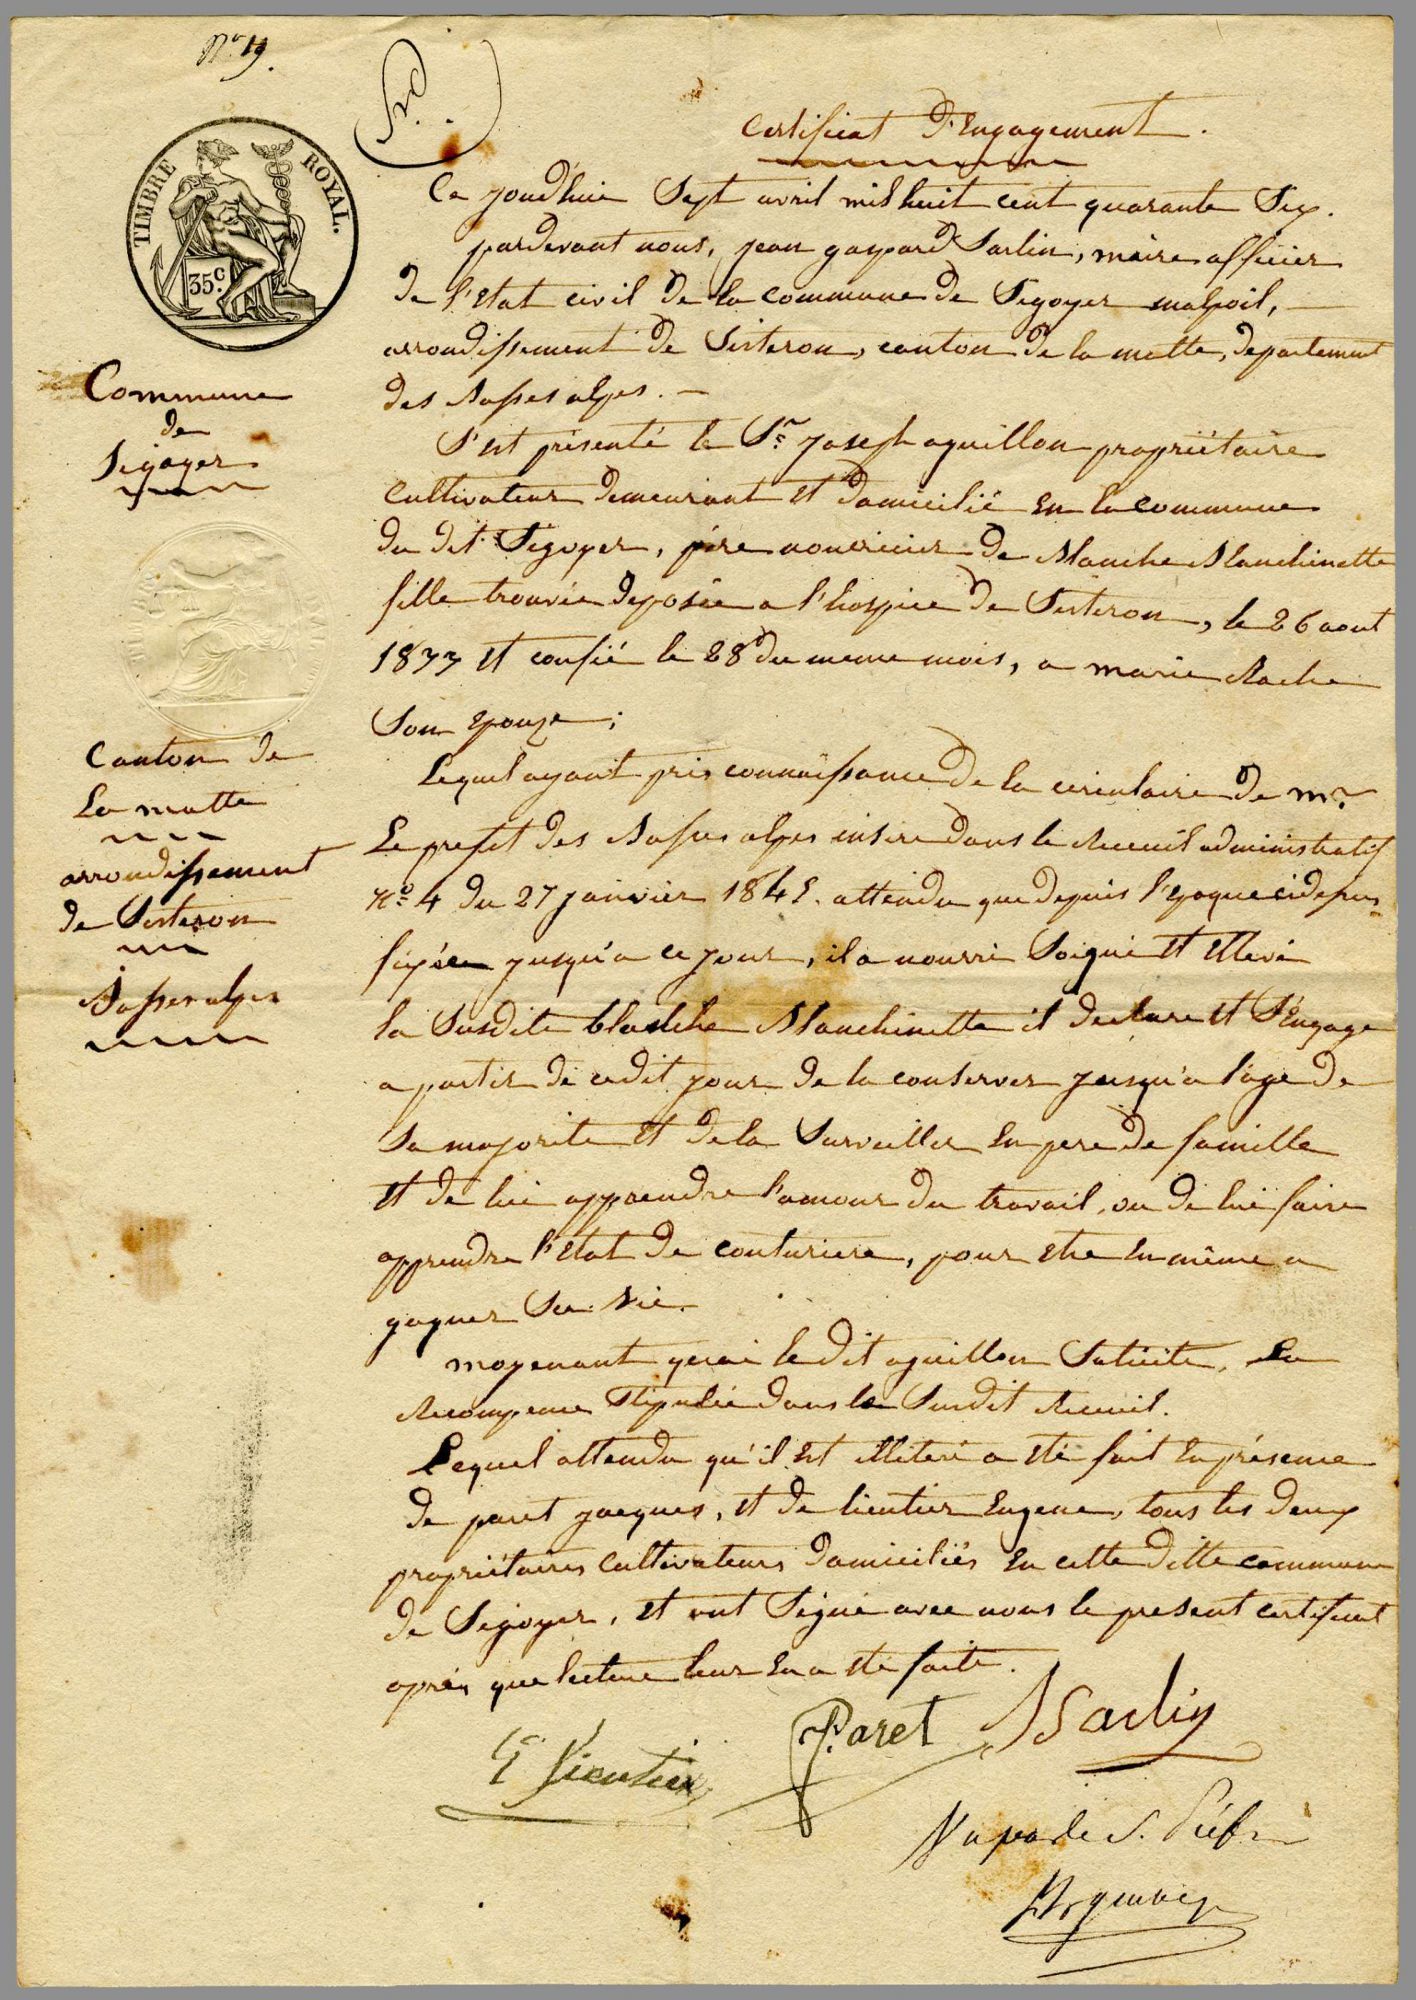 No 19.
TIMBRE ROYAL.
35c.
Commune
de
Sigoyer
Canton de
La motte
arrondissement
de Sisteron
Basses alpes
Certificat d'Engagement.
Ce jourdhui Sept avril mil huit cent quarante Six.
pardevant nous, jean gaspard Sarlin, maire officier
de l'Etat civil de la Commune de Sigoyer malpoil,
arrondissement de Sisteron, canton de la motte, departement
des Basses alpes.
S'est présenté le Sr. joseph aguillon propriétaire
Cultivateur demeurant et domicilié en la commune
du dit Sigoyer, père nourricier de Blanche Blanchinette
fille trouvée deposée a l'hospice de Sisteron, le 26 aout
1833 et confié le 28 du meme mois, a marie Roche
Son epouze;
Lequel ayant pris connaissance de la circulaire de mr.
Le prefet des Basses alpes insere dans le Receuil administratif
no. 4 du 27 janvier 1845. attendu que depuis l'epoque cidessus
fixée jusqu'a ce jour, il a nourri Soigné et Elevé
la Susdite blanche Blanchinette il declare et S'Engage
a partir de cedit jour de la conserver jusqu'a l'age de
Sa majorite et de la Surveiller en pere de famille
et de lui apprendre l'amour du travail, ou de lui faire
apprendre l'Etat de couturiere, pour etre en même a
gagner Sa vie.
moyenant quoi le dit aguillon Solicite, La
Recompence Stipulée dans le Susdit Receuil.
Lequel attendu qu'il est illiteré a eté fait en présence
de paret jacques, et de lieutier Eugene, tous les deux
propriétaires Cultivateurs domiciliés en cette ditte commune
de Sigoyer, et ont Signé avec nous le present certificat
après que lecture leur en a eté faite.
E Lieutier
P. Paret
Sarlin
Vu par le S. Préfet